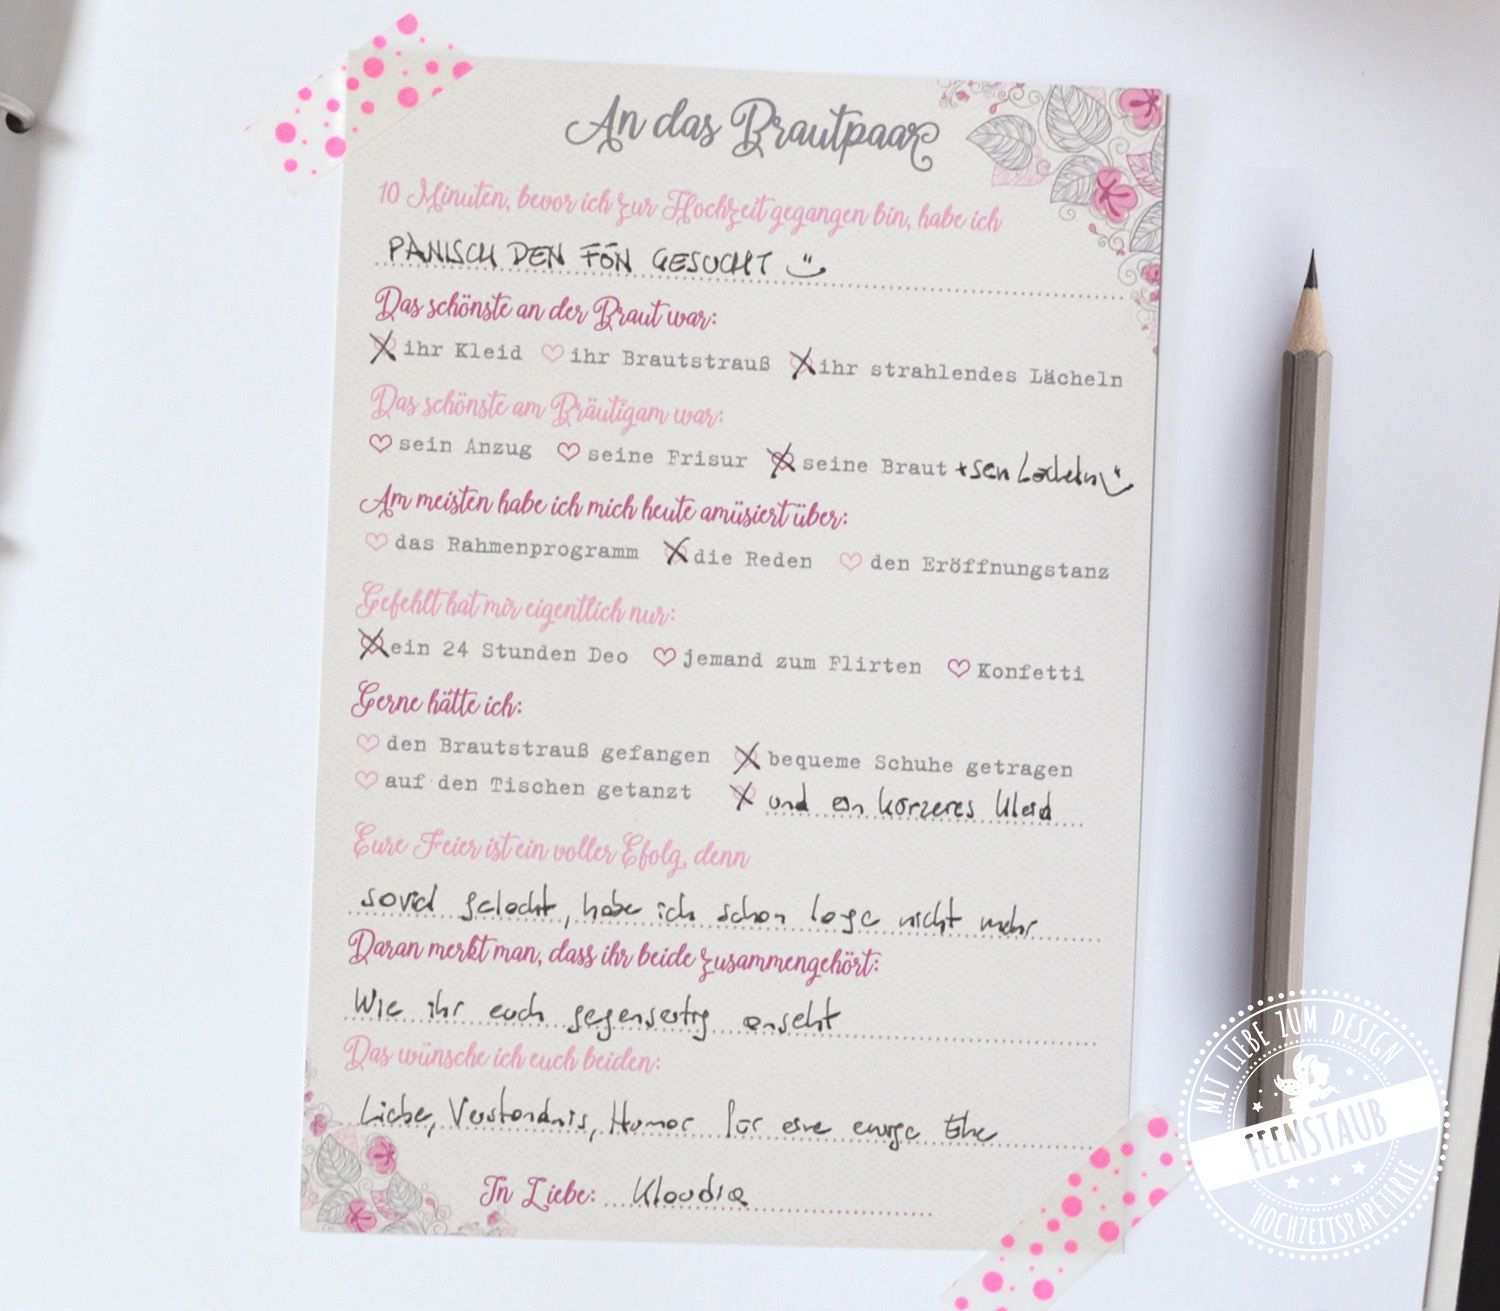 An das Brautpaar
10 Minuten, bevor ich zur Hochzeit gegangen bin, habe ich
PANISCH DEN FÖN GESUCHT
Das schönste an der Braut war:
ihr Kleid ihr Brautstrauß ihr strahlendes Lächeln
Das schönste am Bräutigam war:
sein Anzug seine Frisur seine Braut + sein Lächeln
Am meisten habe ich mich heute amüsiert über:
das Rahmenprogramm die Reden den Eröffnungstanz
Gefehlt hat mir eigentlich nur:
ein 24 Stunden Deo jemand zum Flirten Konfetti
Gerne hätte ich:
den Brautstrauß gefangen bequeme Schuhe getragen
auf den Tischen getanzt und ein kürzeres Kleid
Eure Feier ist ein voller Efolg, denn
soviel gelacht, habe ich schon lange nicht mehr
Daran merkt man, dass ihr beide zusammengehört:
Wie ihr euch gegenseitig anseht
Das wünsche ich euch beiden:
Liebe, Verständnis, Humor für eine ewige Ehe
In Liebe: Klaudia
MIT LIEBE ZUM DESIGN
FEENSTAUB
HOCHZEITSPAPETERIE